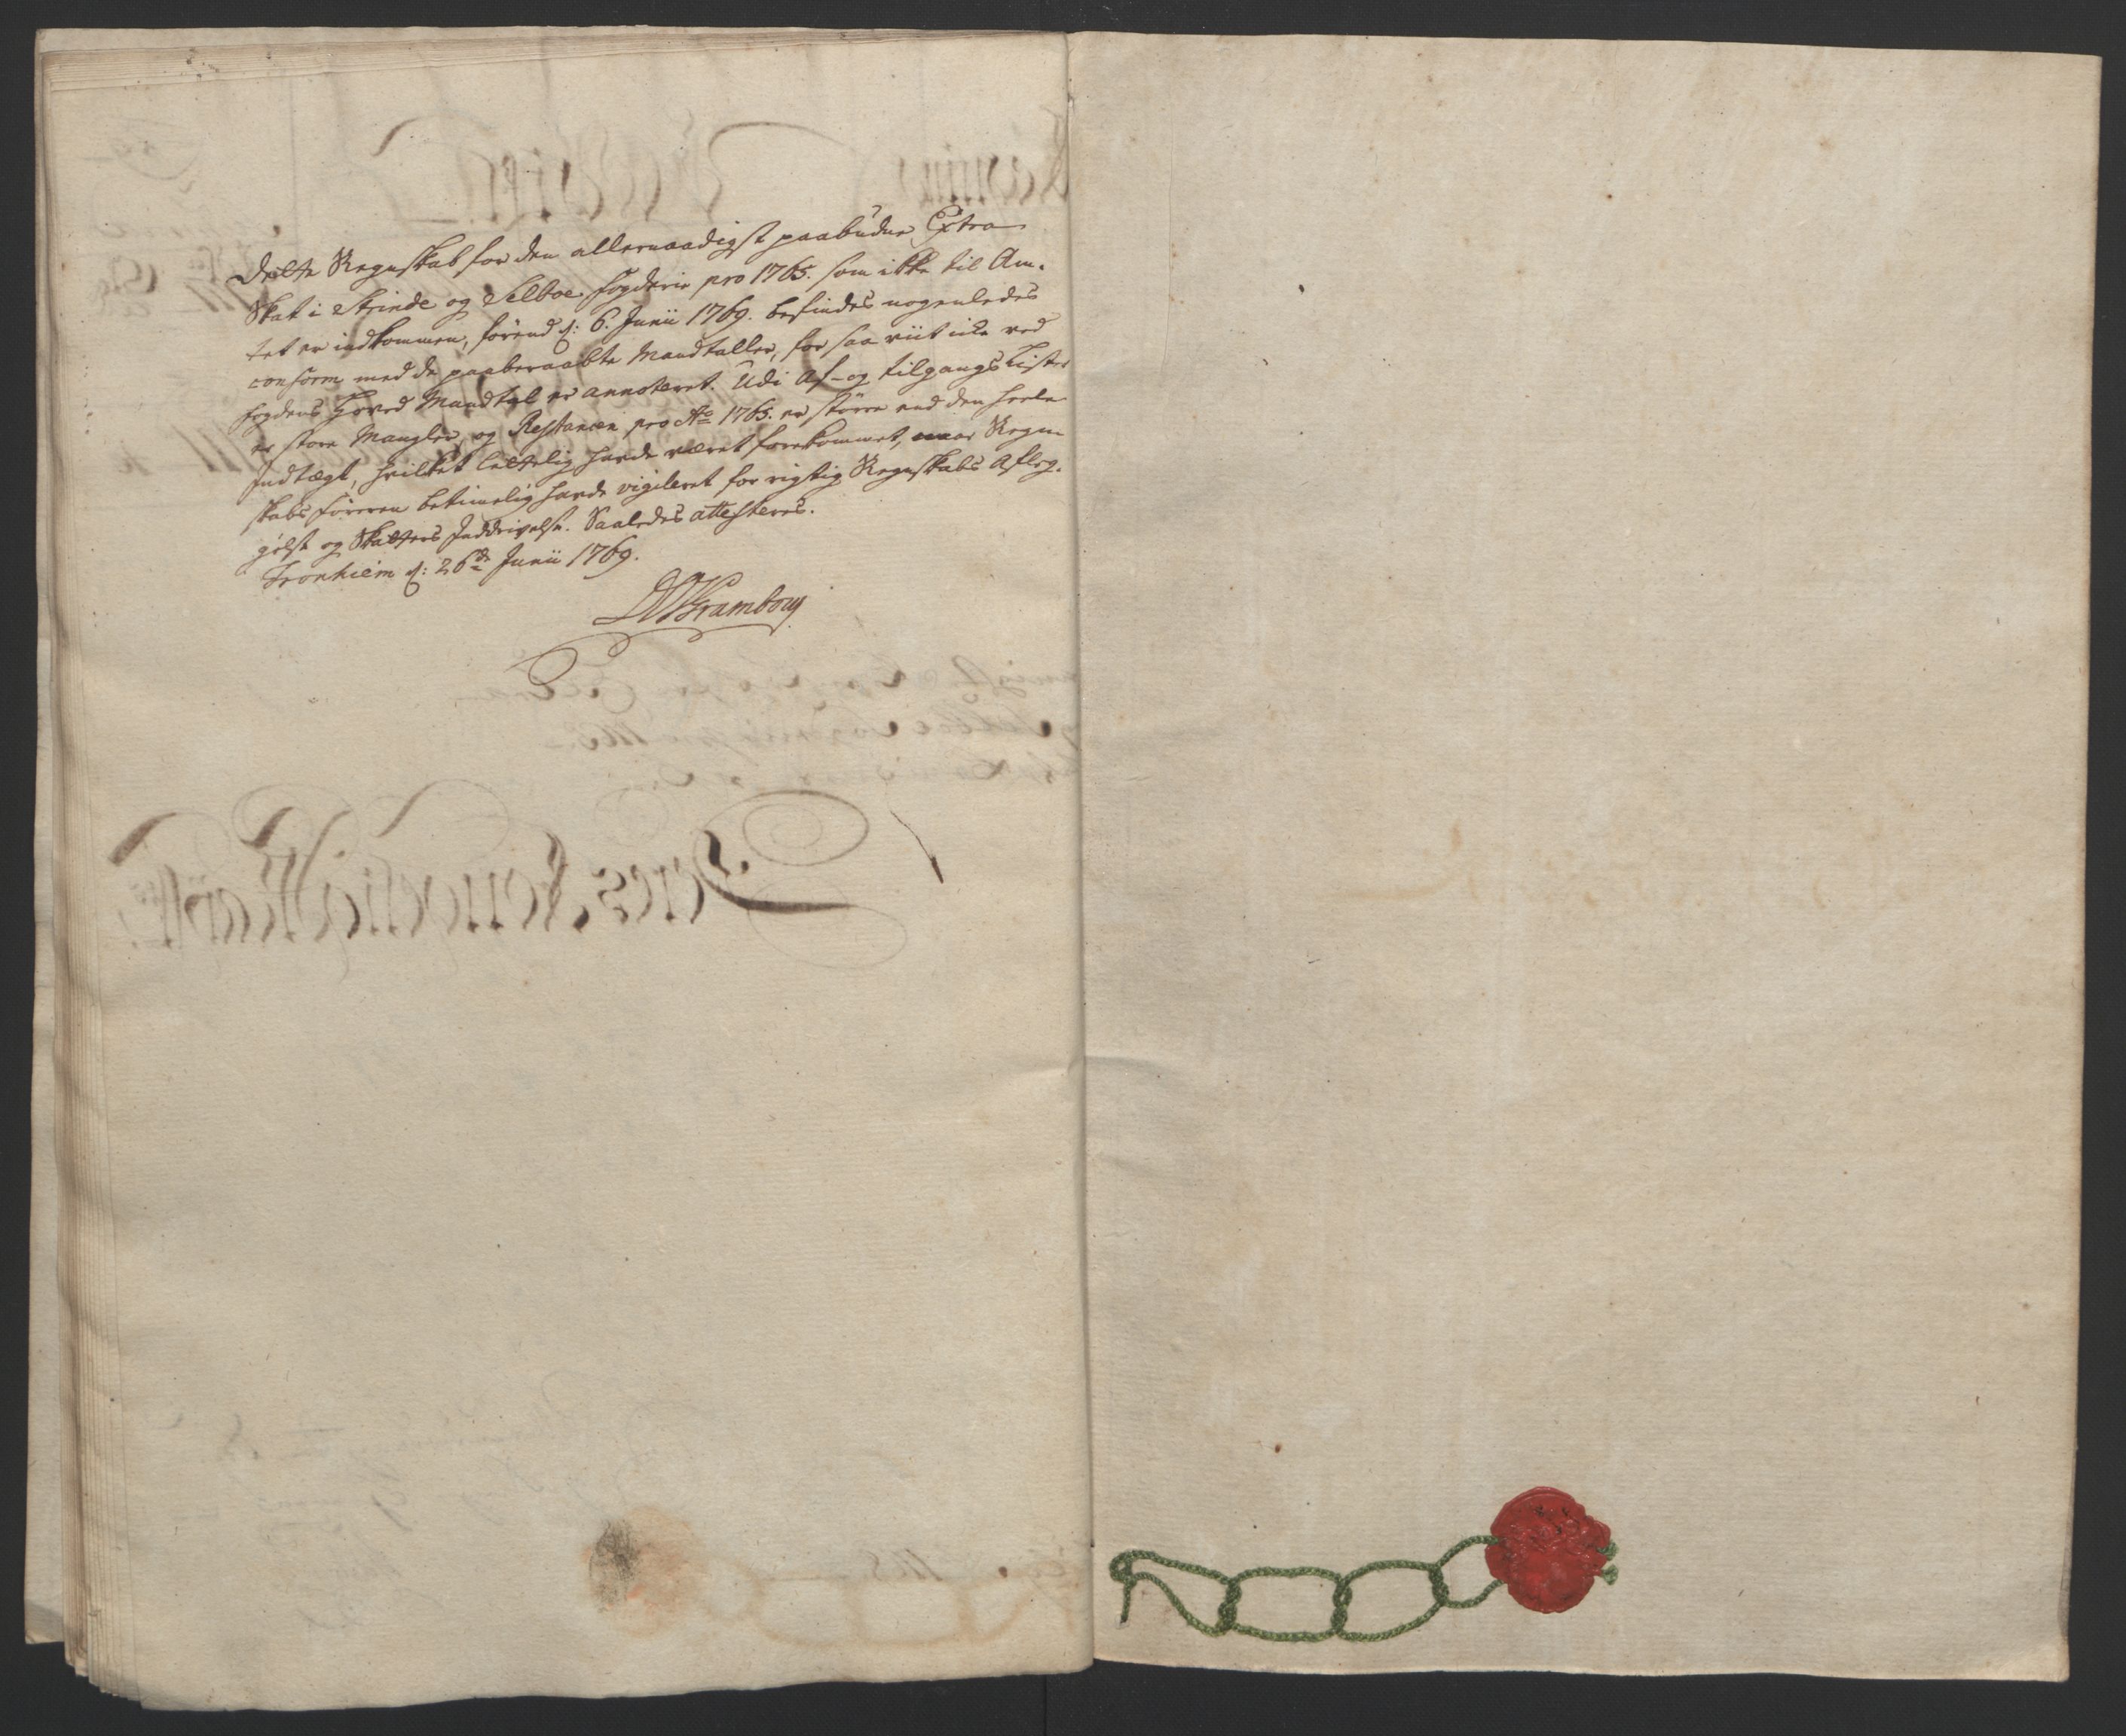 Dette Regnskab for den allernaadigst paabudne Extra
Skat i Strinde og Selboe Fogderie pro 1765. som ikke til Am-
tet er indkommen, førend d: 6. Junii 1769. befindes nogenledes
conform med de paaberaabte Mandtaller, for saa viit icke ved
fogdens Hoved Mandtal er annoteret. Udi Af- og tilgangs Lister
er store Mangler, og Restancen pro Ao 1765. er større end den heele
Indtægt, hvilket lettelig havde været forekommet, naar Regn-
skabsføreren betimelig havde vigileret for rigtig Regnskabs Aflæg-
gelse og Skatters Inddrivelse. Saaledes attesteres.
Tronhiem d: 26de Junii 1769.